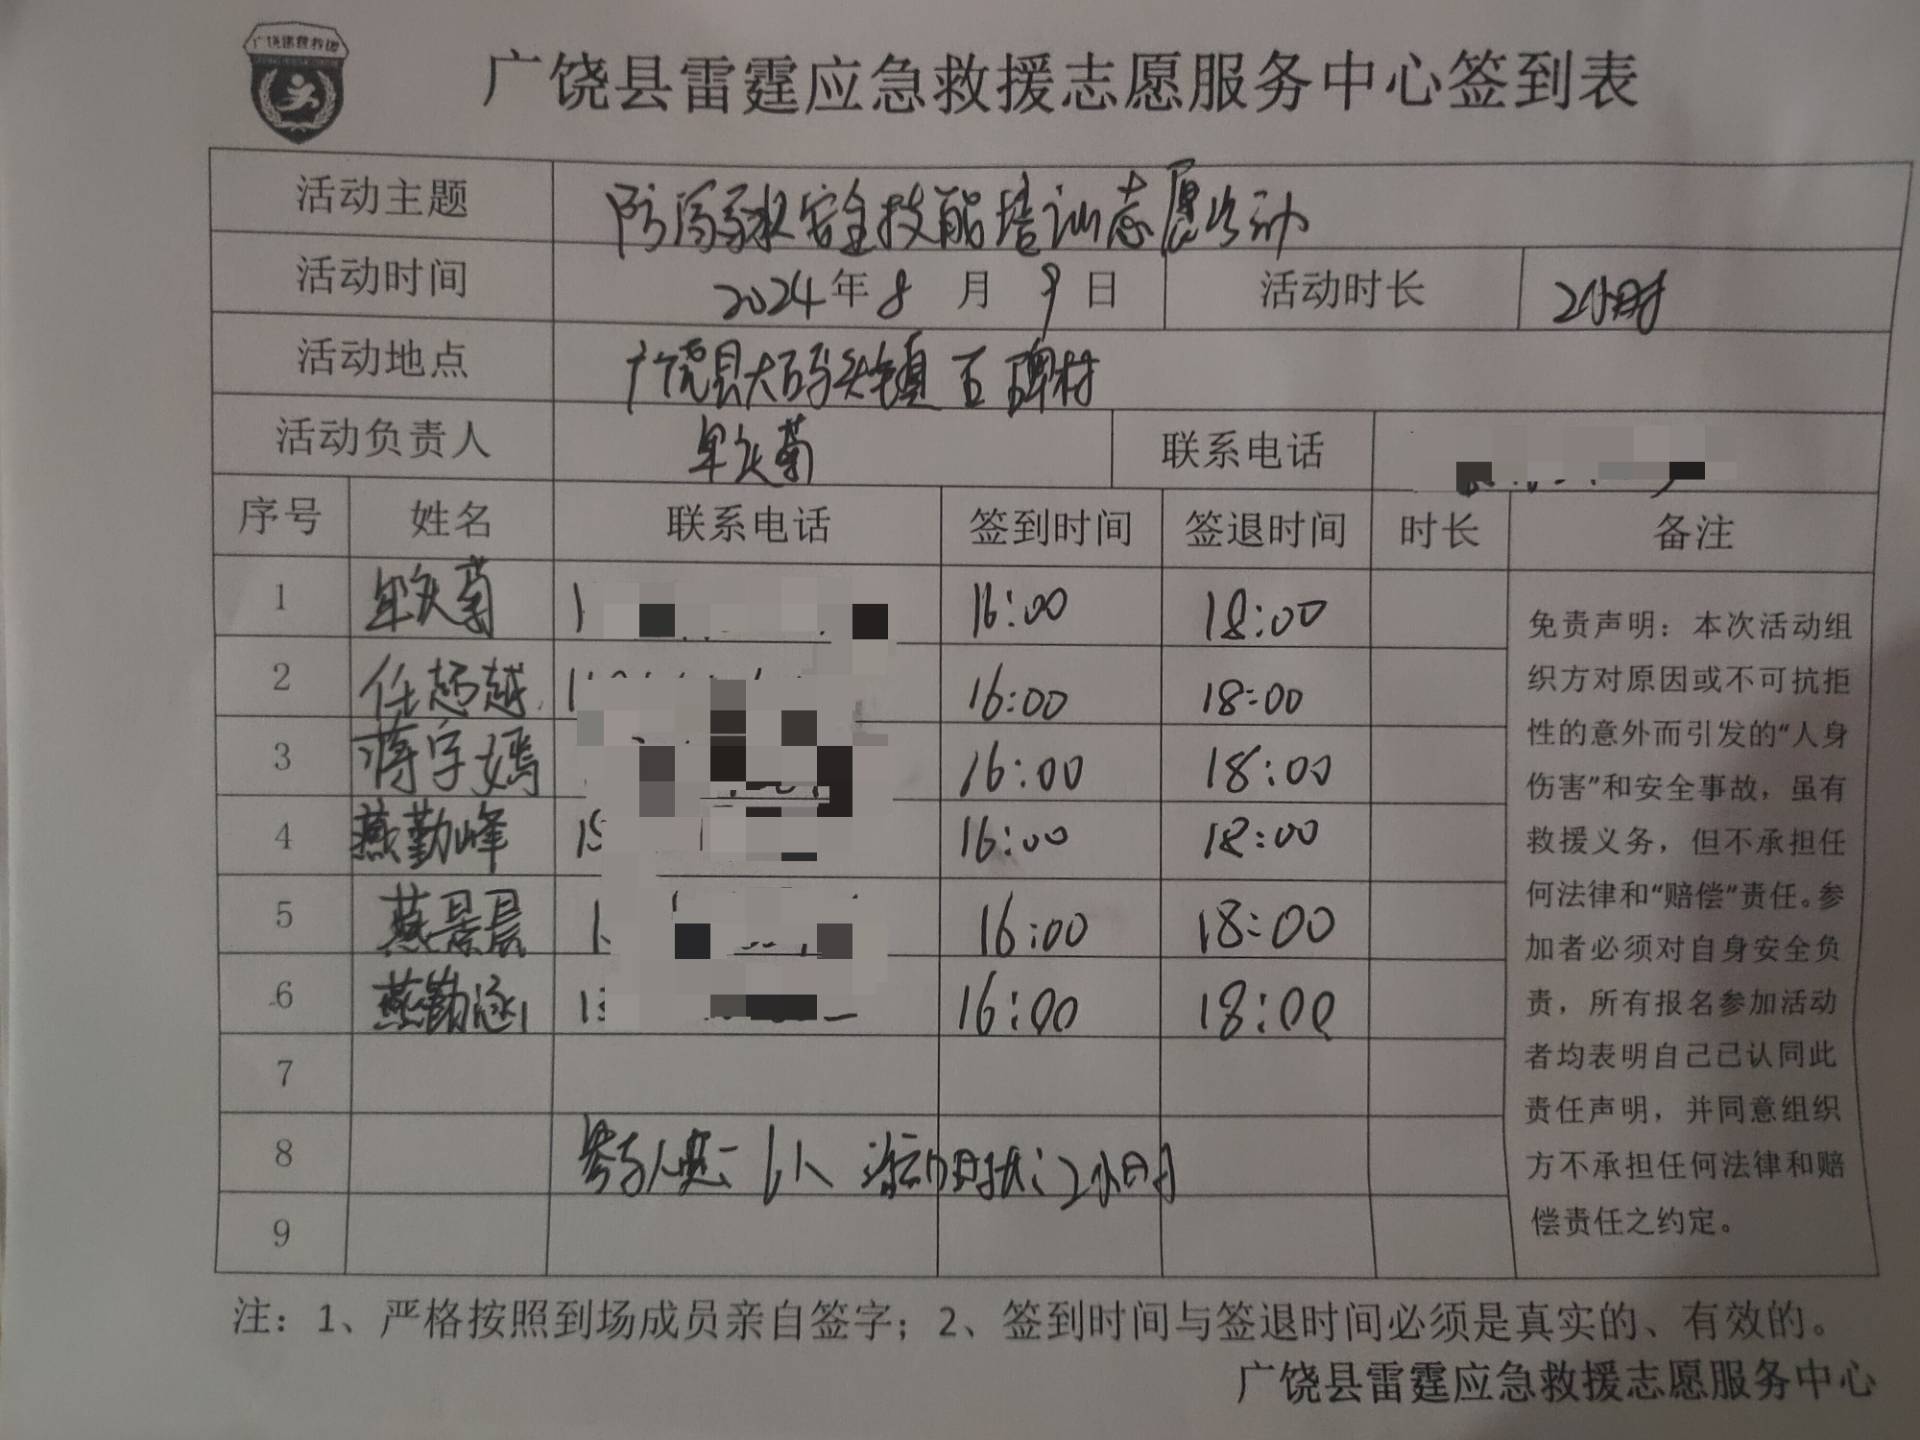 广饶县雷霆应急救援志愿服务中心签到表
活动主题 防溺水安全技能培训志愿活动
活动时间 2024年8月9日 活动时长 2小时
活动地点 广饶县大码头镇 百碑村
活动负责人 联系电话
序号 姓名 联系电话 签到时间 签退时间 时长 备注
1 16:00 18:00
2 任超越 16:00 18:00
3 蒋字嫣 16:00 18:00
4 燕勤峰 16:00 18:00
5 燕景晨 16:00 18:00
6 燕勤涵 16:00 18:00
7
8 参与人数: 6人 活动时长:2小时
9
免责声明：本次活动组
织方对原因或不可抗拒
性的意外而引发的“人身
伤害”和安全事故，虽有
救援义务，但不承担任
何法律和“赔偿”责任。参
加者必须对自身安全负
责，所有报名参加活动
者均表明自己已认同此
责任声明，并同意组织
方不承担任何法律和赔
偿责任之约定。
注：1、严格按照到场成员亲自签字；2、签到时间与签退时间必须是真实的、有效的。
广饶县雷霆应急救援志愿服务中心